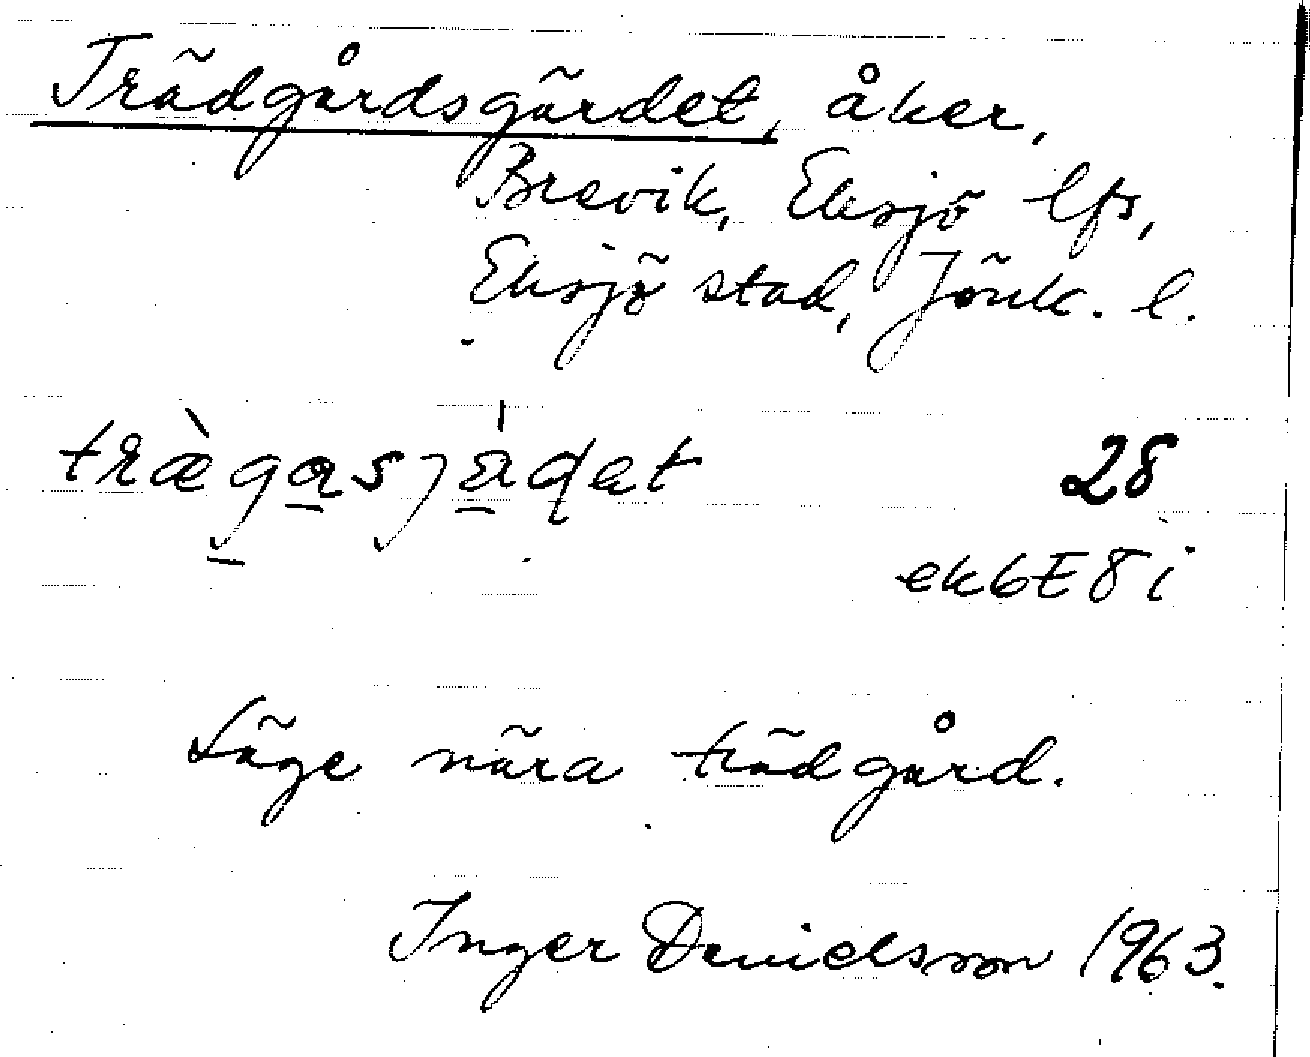 Trädgårdsgärdet, åker,
Brevik, Eksjö lfs,
Eksjö stad, Jönk. l.
28
ek6E8i
Läge nära trädgård.
Inger Danielsson 1963.